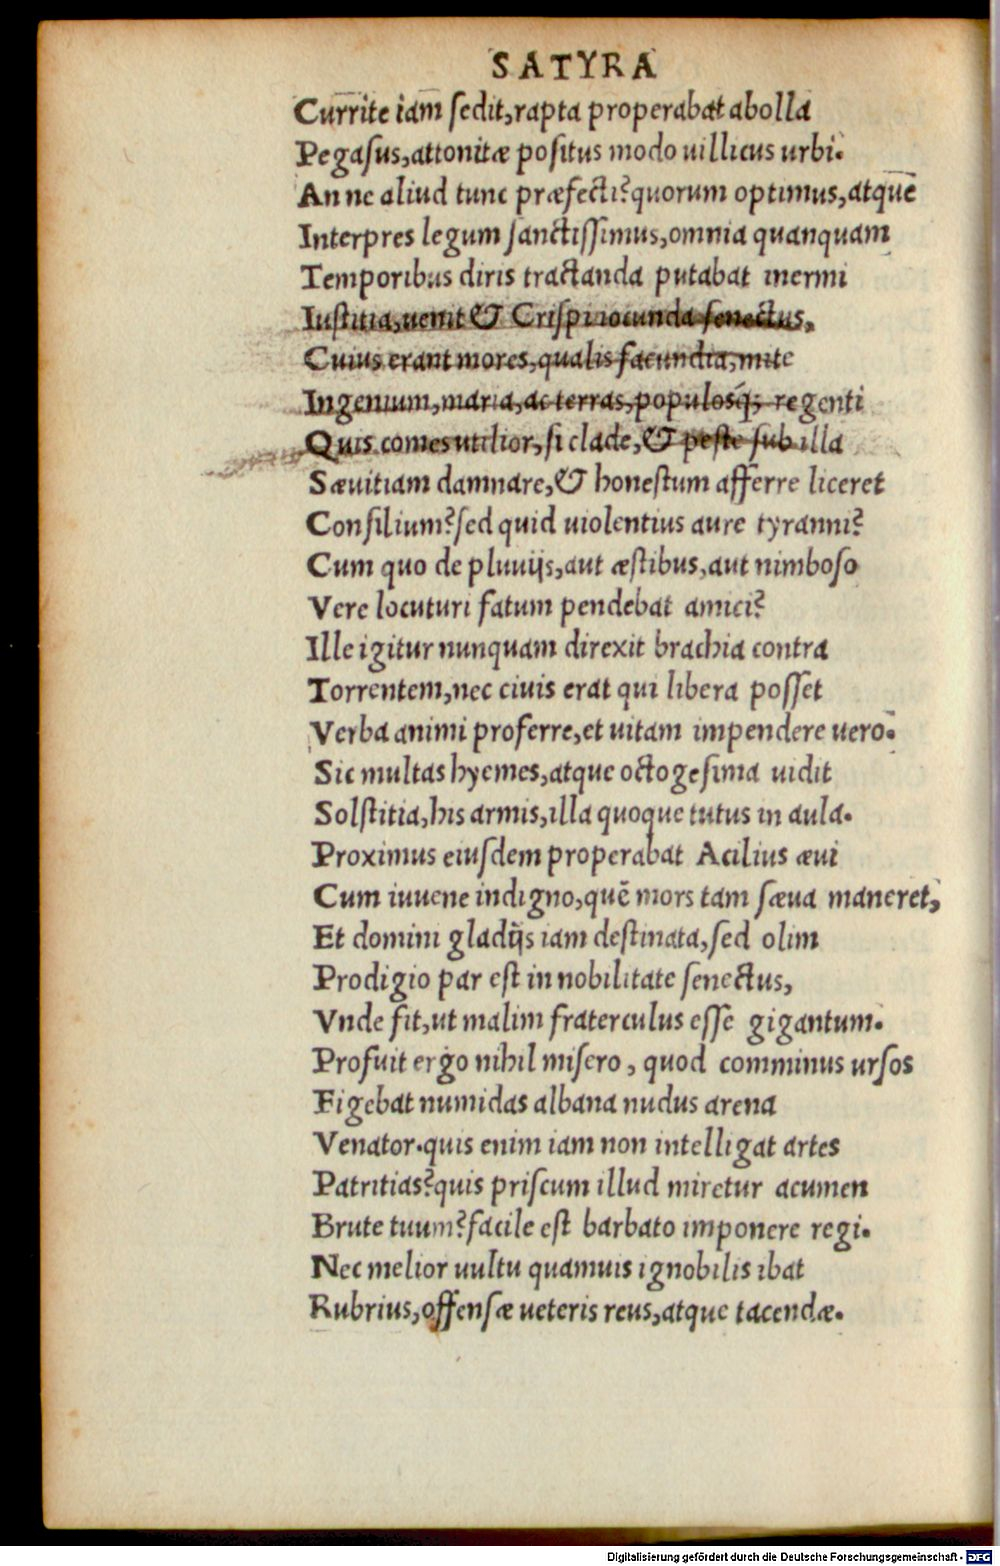 SATYRA
Currite iam sedit, rapta properabat abolla
Pegasus, attonitæ positus modo uillicus urbi.
An ne aliud tunc præfecti? quorum optimus, atque
Interpres legum sanctissimus, omnia quanquam
Temporibus diris tractanda putabat inermi
Iustitia, uenit & Crispi iocunda senectus,
Cuius erant mores, qualis facundia, mite
Ingenium, maria, ac terras, populosq́; regenti
Quis comes utilior, si clade, & peste sub illa
Sæuitiam damnare, & honestum afferre liceret
Consilium? sed quid uiolentius aure tyranni?
Cum quo de pluuijs, aut æstibus, aut nimboso
Vere locuturi fatum pendebat amici?
Ille igitur nunquam direxit brachia contra
Torrentem, nec ciuis erat qui libera posset
Verba animi proferre, et uitam impendere uero.
Sic multas hyemes, atque octogesima uidit
Solstitia, his armis, illa quoque tutus in aula.
Proximus eiusdem properabat Acilius æui
Cum iuuene indigno, quē mors tam sæua maneret,
Et domini gladijs iam destinata, sed olim
Prodigio par est in nobilitate senectus,
Vnde fit, ut malim fraterculus esse gigantum.
Profuit ergo nihil misero, quod comminus ursos
Figebat numidas albana nudus arena
Venator. quis enim iam non intelligat artes
Patritias? quis priscum illud miretur acumen
Brute tuum? facile est barbato imponere regi.
Nec melior uultu quamuis ignobilis ibat
Rubrius, offensæ ueteris reus, atque tacendæ.
Digitalisierung gefördert durch die Deutsche Forschungsgemeinschaft - DFG